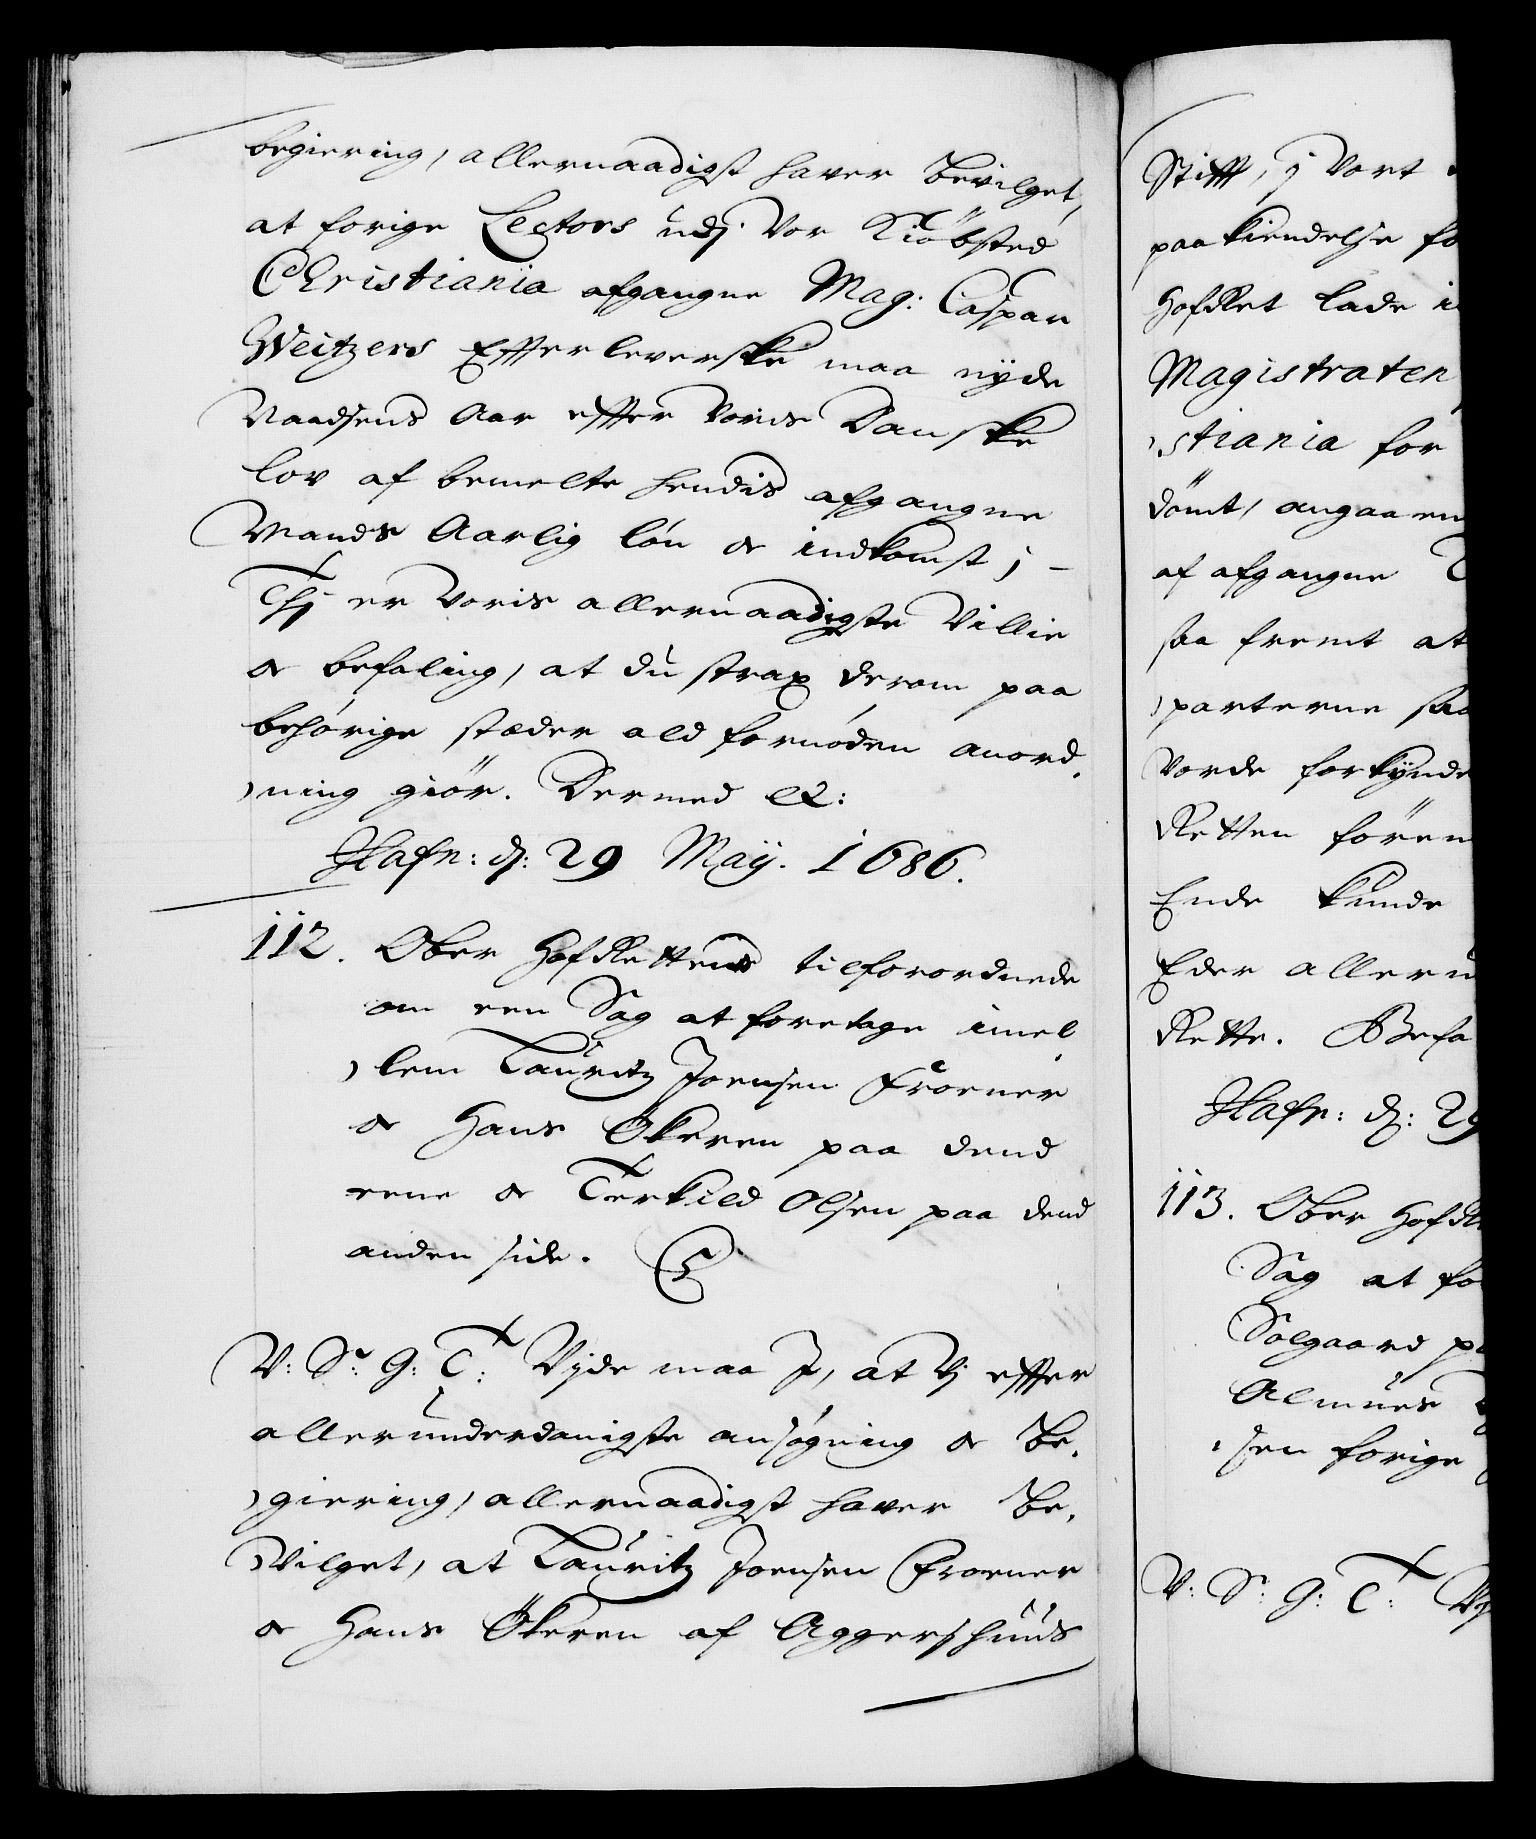 begiering, allernaadigst hafver bevilget,
at forige Lectors udj Vor Kiöbsted
Christiania afgangne Mag: Caspar
Weitzers Effterleverske maa nyde
Naadsens Aar effter Voris Danske
lov af bemelte hendis afgangne
Mands Aarlig løn oc indkomst; -
Thj er Voris allernaadigste Villie
oc befaling, at du strax derom paa
behörige stæder ald fornøden anord,
,ning giör. Dermed etc:
Hafn: d: 29 Maÿ. 1686.
112. Ober Hof Rettens tilforordnede
om een Sag at foretage imel,
,lem Lauritz Joensen Troener
oc Hans Økeren paa dend
eene oc Terkild Olsen paa dend
anden side.
V: Sr: G: T: Vide maa J, at Vj effter
allerunderdanigste ansøgning oc Be,
,giering, allernaadigst hafver Be,
,Vilget, at Lauritz Joensen Troener
oc Hans Økeren af Aggershuus
Stifft, j Vort
paakiendelse fo
Hof Ret lade i
Magistraten
,stiania for
dömt, angaaen
af afgangne T
saa fremt at
,parterne saa
Vorde forkynde
Retten fören
Ende kunde
Eder alleru
Rette. Befa
Hafn: d: 29
113. Ober Hof R
Sag at fo
Solgaard p
Almues
,sen forige
V: Sr: G: T: Vi